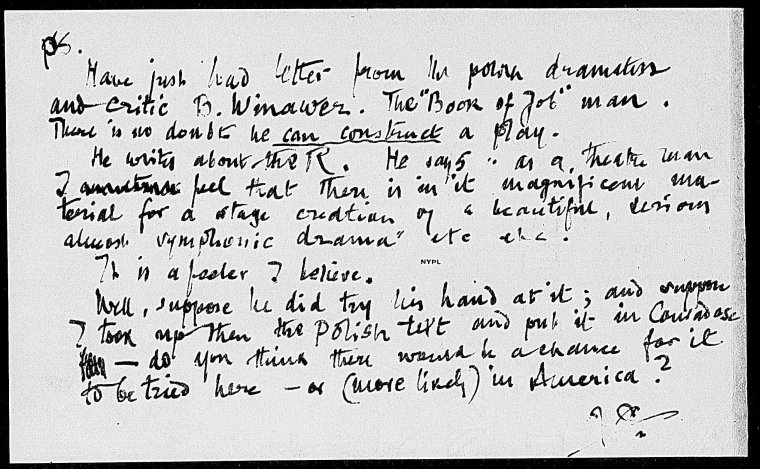 PS.
Have just had letter from the polish dramatist
and critic B. Winawer. The "Book of Job" man.
There is no doubt he can construct a play.
He writes about the R. He says "as a theatre man
I feel that there is in it magnificent ma-
terial for a stage creation of a beautiful, serious
almost symphonic drama" etc etc.
It is a feeler I believe.
NYPL
Well, suppose he did try his hand at it; and suppose
I took up then the Polish text and put it in Conradese
— do you think there would be a chance for it
to be tried here — or (more likely) in America?